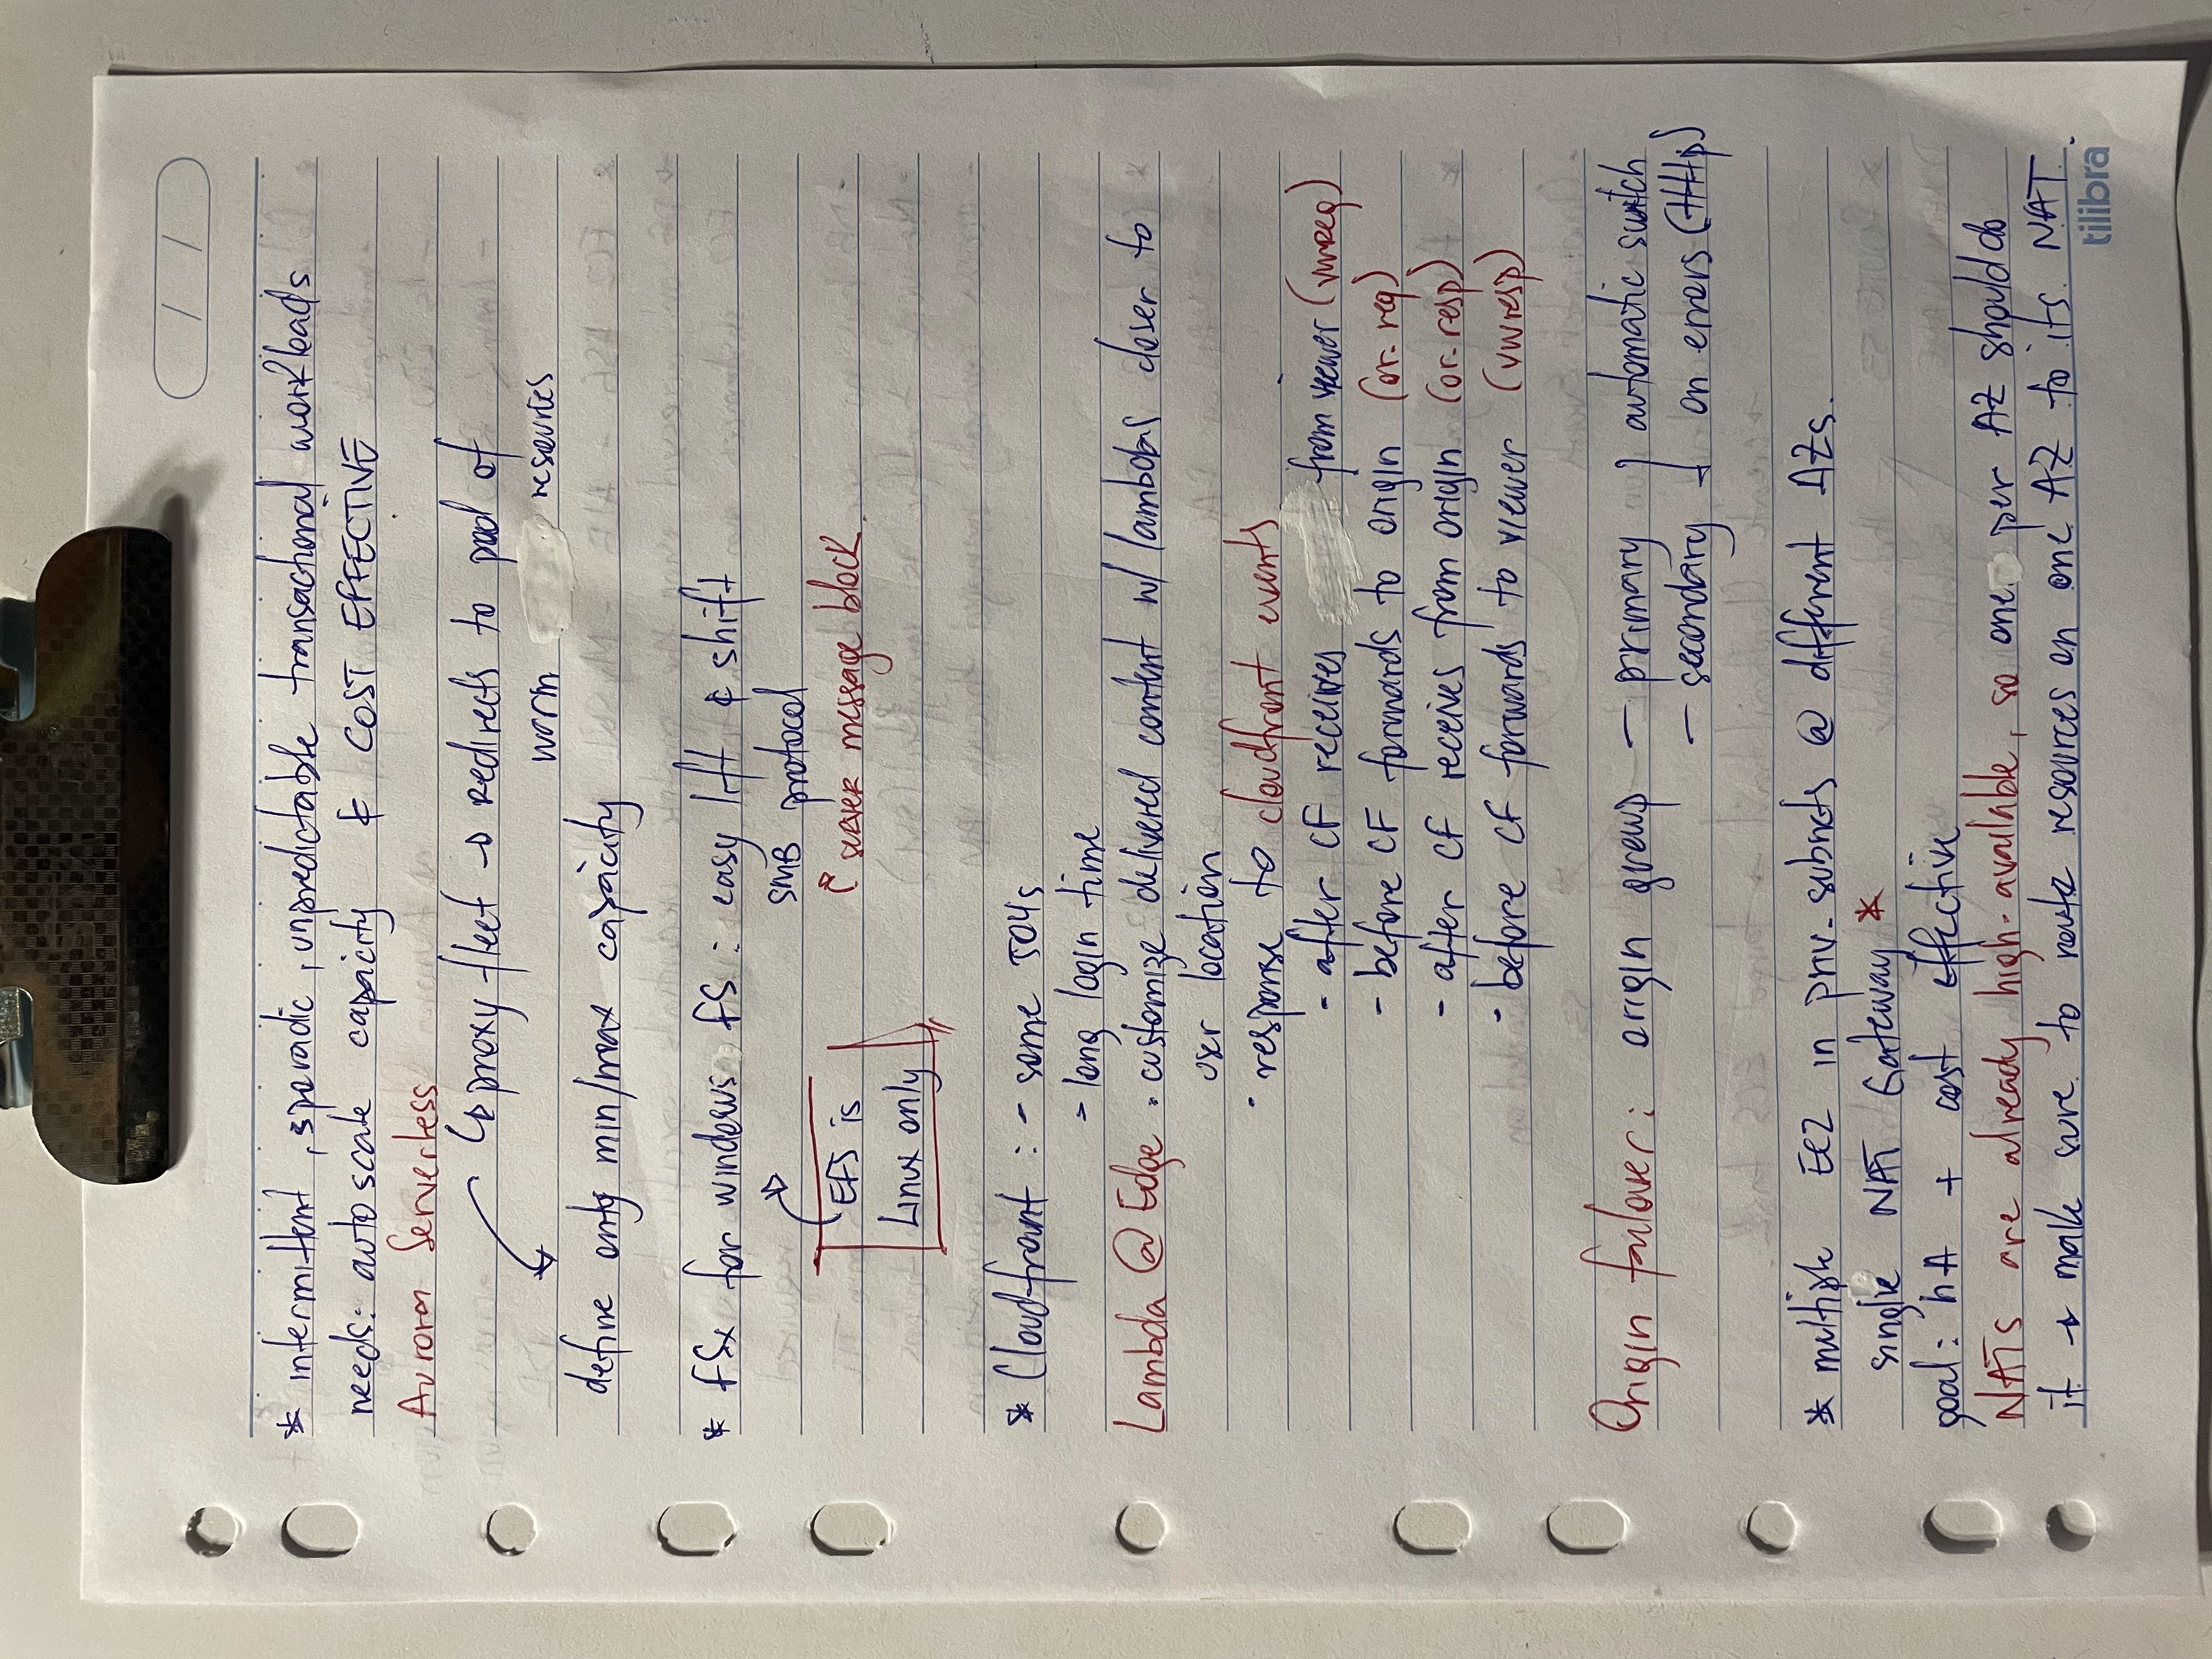 * intermittent, sporadic, unpredictable transactional workloads
needs: autoscale capacity & COST EFFECTIVE
Aurora Serverless
↳ proxy fleet → redirects to pool of
warm resources
define only min/max capacity
* FSx for windows FS : easy lift & shift
SMB protocol
EFS is
Linux only
↱ server message block.
* Cloudfront : - some 504s
- long login time
Lambda @ Edge • customize delivered content w/ lambdas closer to
user location
• response to cloudfront events
- after CF receives from viewer (vwreq)
- before CF forwards to origin (or-req)
- after CF receives from origin (or-resp)
- before CF forwards to viewer (vwresp)
Origin failover: origin group — primary } automatic switch
— secondary } on errors (Http)
* multiple EC2 in priv. subnets @ different AZs.
single NAT Gateway *
goal: hA + cost effective
NATs are already high-available, so one per AZ should do
it → make sure to route resources on one AZ to its NAT.
tilibra